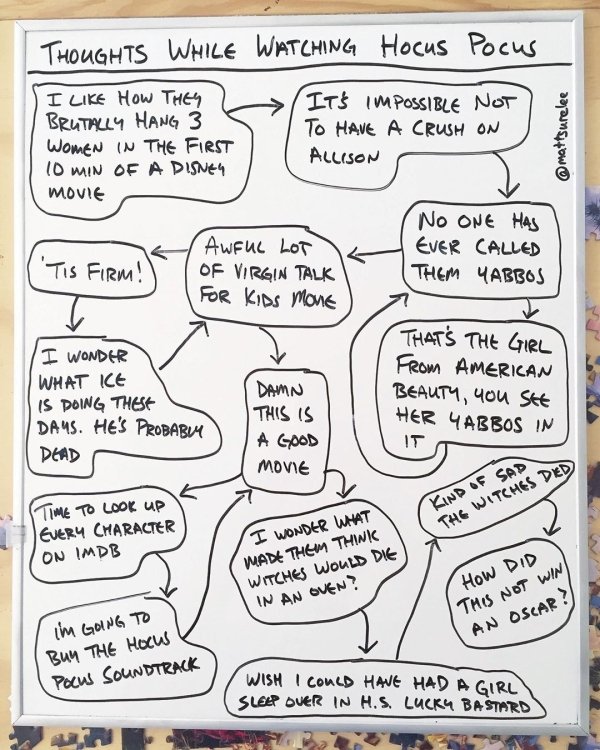 THOUGHTS WHILE WATCHING HOCUS POCUS
I LIKE HOW THEY
BRUTALLY HANG 3
WOMEN IN THE FIRST
10 MIN OF A DISNEY
MOVIE
IT'S IMPOSSIBLE NOT
TO HAVE A CRUSH ON
ALLISON
@mattsurelee
NO ONE HAS
EVER CALLED
THEM YABBOS
AWFUL LOT
OF VIRGIN TALK
FOR KIDS MOVIE
'TIS FIRM!
I WONDER
WHAT ICE
IS DOING THESE
DAYS. HE'S PROBABLY
DEAD
THAT'S THE GIRL
FROM AMERICAN
BEAUTY, YOU SEE
HER YABBOS IN
IT
DAMN
THIS IS
A GOOD
MOVIE
TIME TO LOOK UP
EVERY CHARACTER
ON IMDB
I'M GOING TO
BUY THE HOCUS
POCUS SOUNDTRACK
I WONDER WHAT
MADE THEM THINK
WITCHES WOULD DIE
IN AN OVEN?
WISH I COULD HAVE HAD A GIRL
SLEEP OVER IN H.S. LUCKY BASTARD
KIND OF SAD
THE WITCHES DIED
HOW DID
THIS NOT WIN
AN OSCAR?